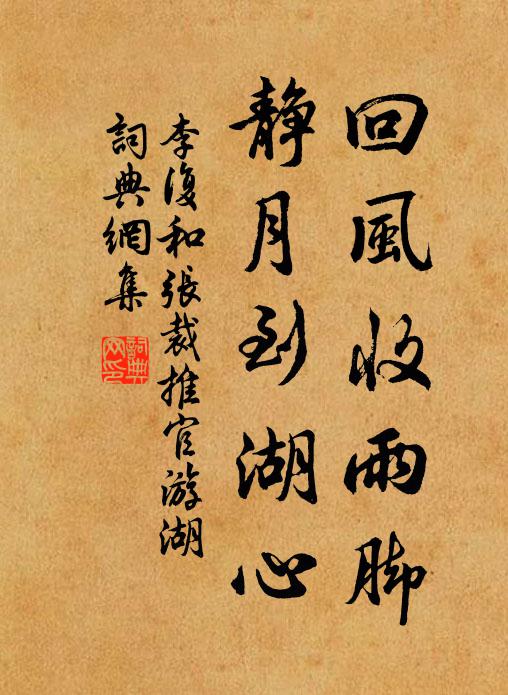 回風收雨脚
静月到湖心
李復和張裁推官游湖
詞典網集
詞典
网印